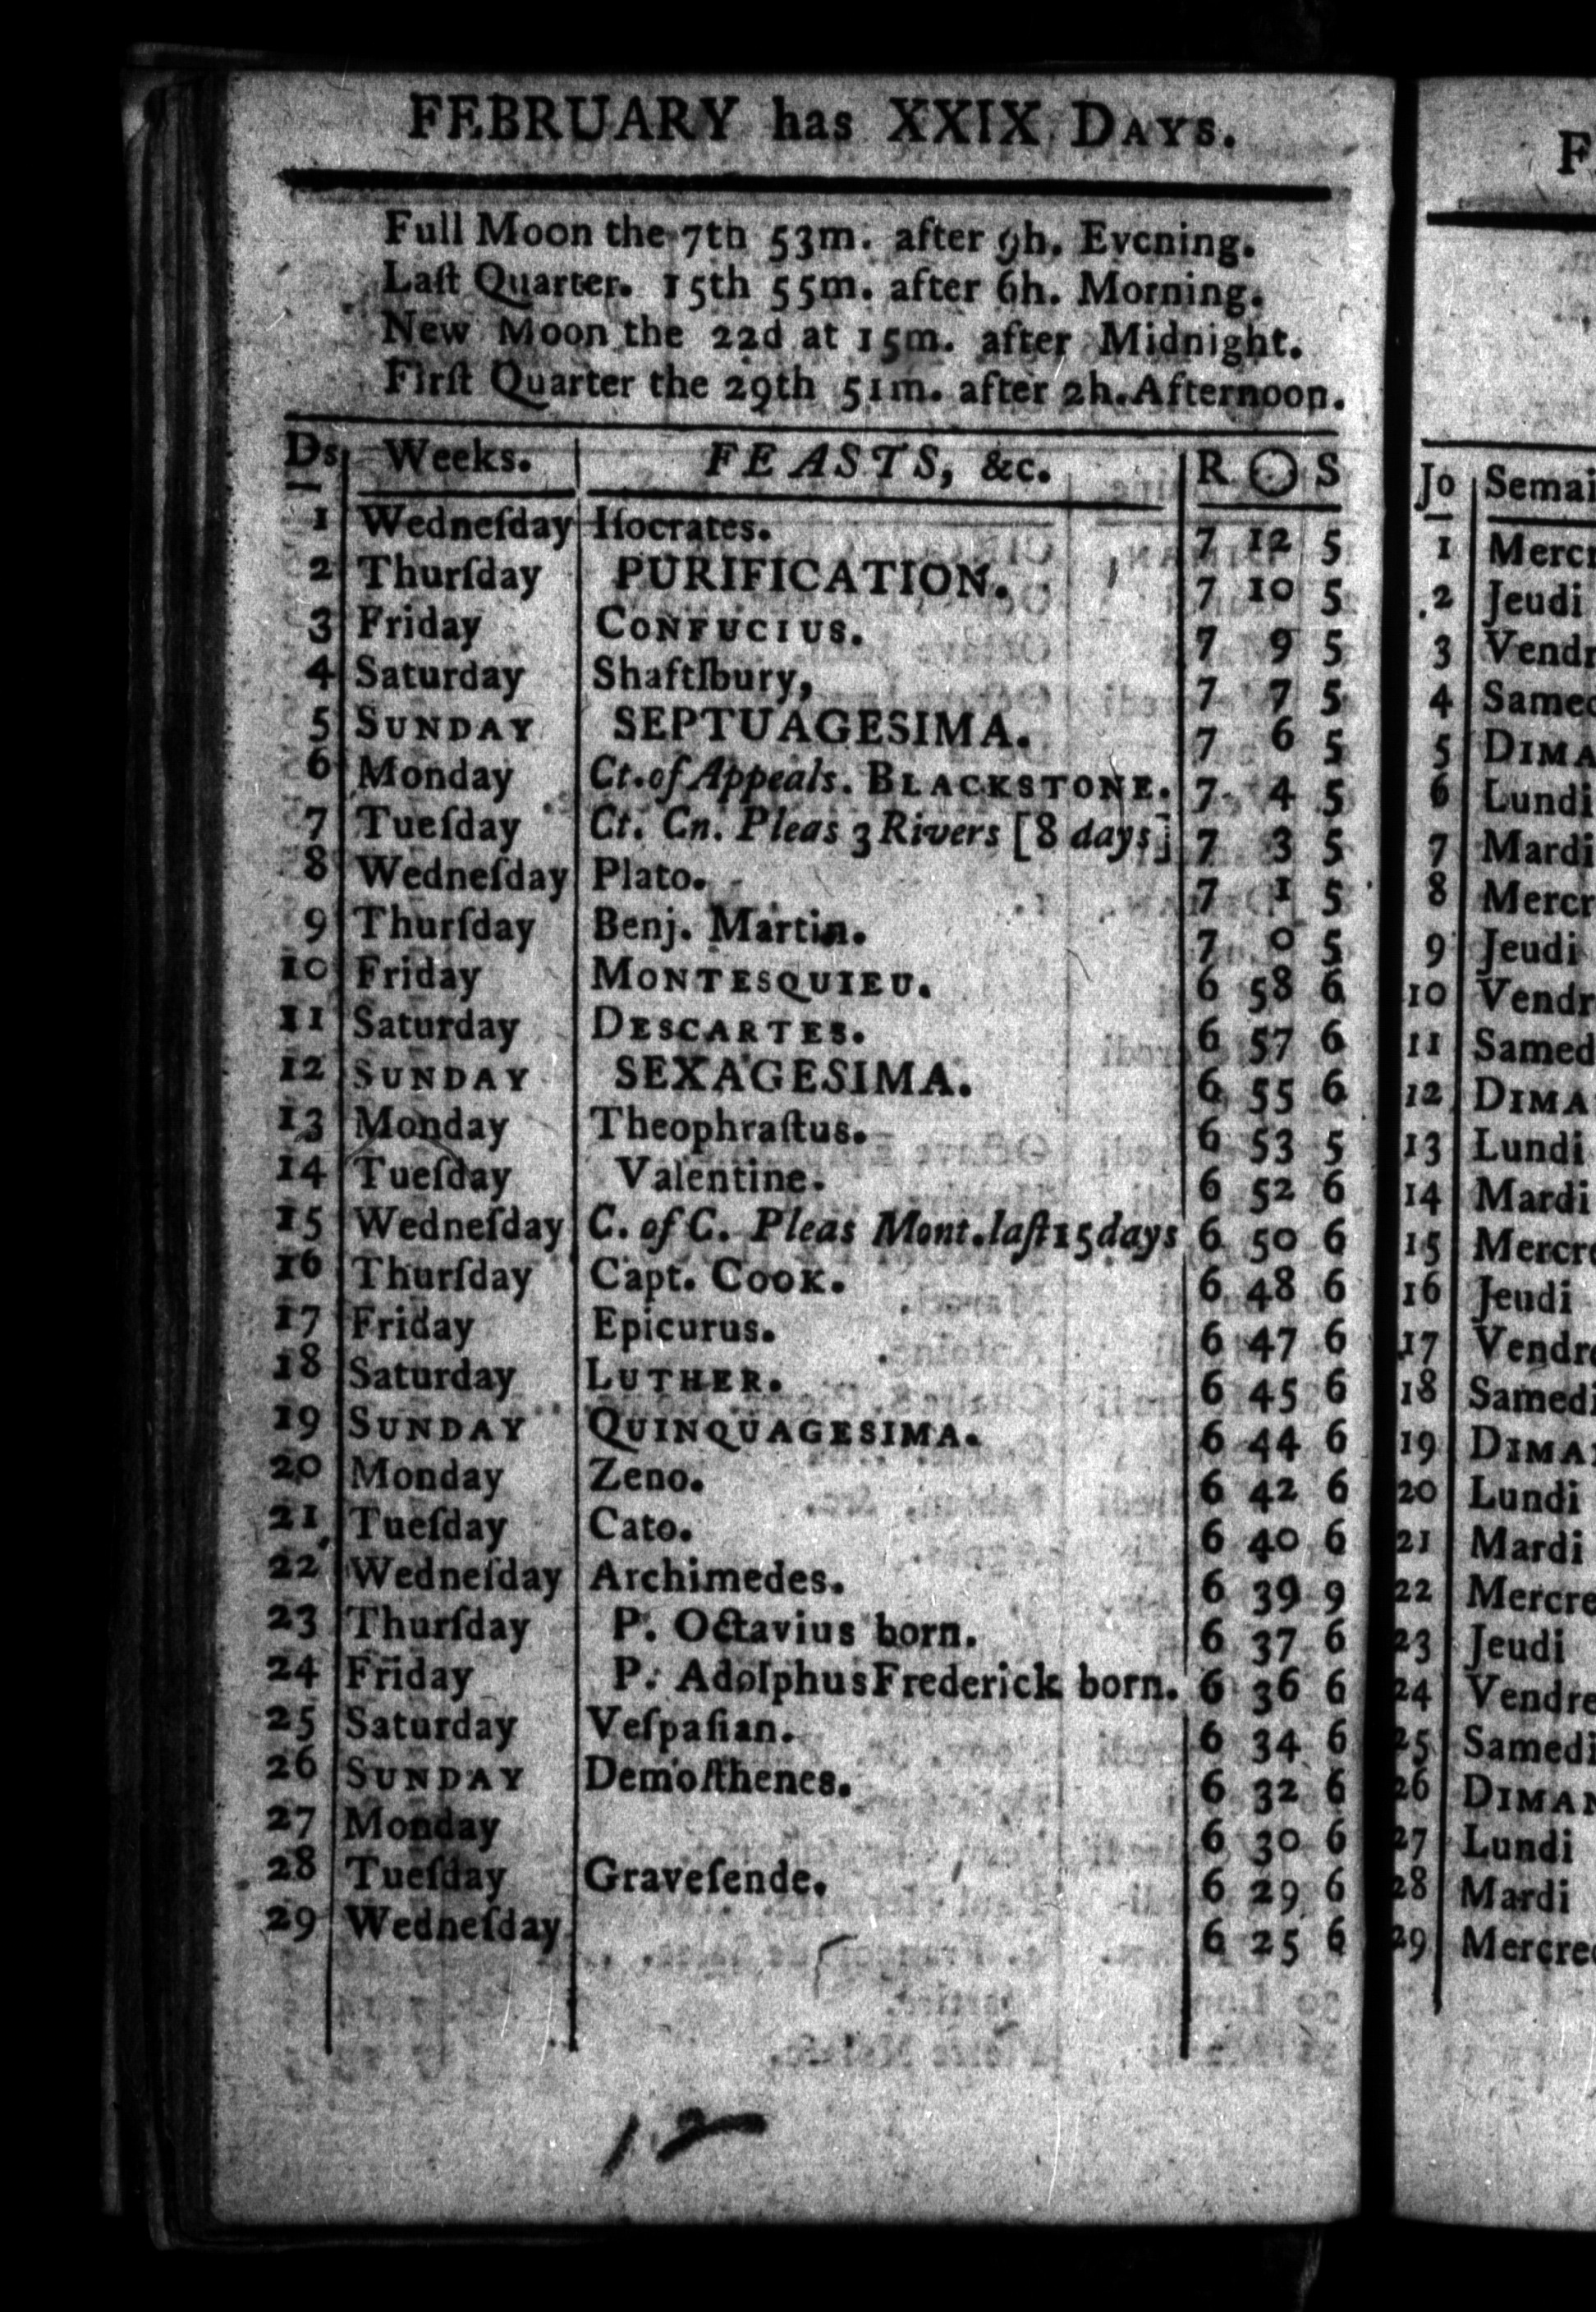 FEBRUARY has XXIX DAYS.
Full Moon the 7th 53m. after 9h. Evening.
Laſt Quarter. 15th 55m. after 6h. Morning.
New Moon the 22d at 15m. after Midnight.
Firſt Quarter the 29th 51m. after 2h. Afternoon.
Ds Weeks. FEASTS, &c. R ☉ S
1 Wedneſday Iſocrates. 7 12 5
2 Thurſday PURIFICATION. 7 10 5
3 Friday CONFUCIUS. 7 9 5
4 Saturday Shaftſbury, 7 7 5
5 SUNDAY SEPTUAGESIMA. 7 6 5
6 Monday Ct. of Appeals. BLACKSTONE. 7 4 5
7 Tueſday Ct. Cn. Pleas 3 Rivers [8 days] 7 3 5
8 Wedneſday Plato. 7 1 5
9 Thurſday Benj. Martin. 7 0 5
10 Friday MONTESQUIEU. 6 58 6
11 Saturday DESCARTES. 6 57 6
12 SUNDAY SEXAGESIMA. 6 55 6
13 Monday Theophraſtus. 6 53 5
14 Tueſday Valentine. 6 52 6
15 Wedneſday C. of C. Pleas Mont. laſt 15 days 6 50 6
16 Thurſday Capt. COOK. 6 48 6
17 Friday Epicurus. 6 47 6
18 Saturday LUTHER. 6 45 6
19 SUNDAY QUINQUAGESIMA. 6 44 6
20 Monday Zeno. 6 42 6
21 Tueſday Cato. 6 40 6
22 Wedneſday Archimedes. 6 39 9
23 Thurſday P. Octavius born. 6 37 6
24 Friday P. Adolphus Frederick born. 6 36 6
25 Saturday Veſpaſian. 6 34 6
26 SUNDAY Demoſthenes. 6 32 6
27 Monday 6 30 6
28 Tueſday Graveſende. 6 29 6
29 Wedneſday 6 25 6
12
F
Jo Semai
1 Merc
2 Jeudi
3 Vendr
4 Same
5 DIMA
6 Lundi
7 Mardi
8 Mercr
9 Jeudi
10 Vendr
11 Samed
12 DIMA
13 Lundi
14 Mardi
15 Mercr
16 Jeudi
17 Vendre
18 Samedi
19 DIMA
20 Lundi
21 Mardi
22 Mercre
23 Jeudi
24 Vendre
25 Samedi
26 DIMAN
27 Lundi
28 Mardi
29 Mercre